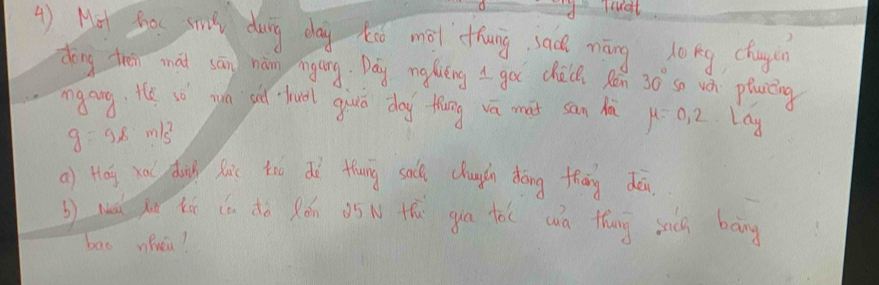 4) Một học sinh dùng dây kéo một thùng sách nặng 10 kg chuyển
động trên mặt sàn nằm ngang. Dây nghiêng 1 góc chếch lên 30° so với phương
ngang. Hệ số ma sát trượt giữa đáy thùng và mặt sàn là μ = 0,2. Lấy
g = 9,8 m/s²
a) Hãy xác định lực kéo để thùng sách chuyển động thẳng đều.
b) Nếu lực kéo có độ lớn 25 N thì gia tốc của thùng sách bằng
bao nhiêu?